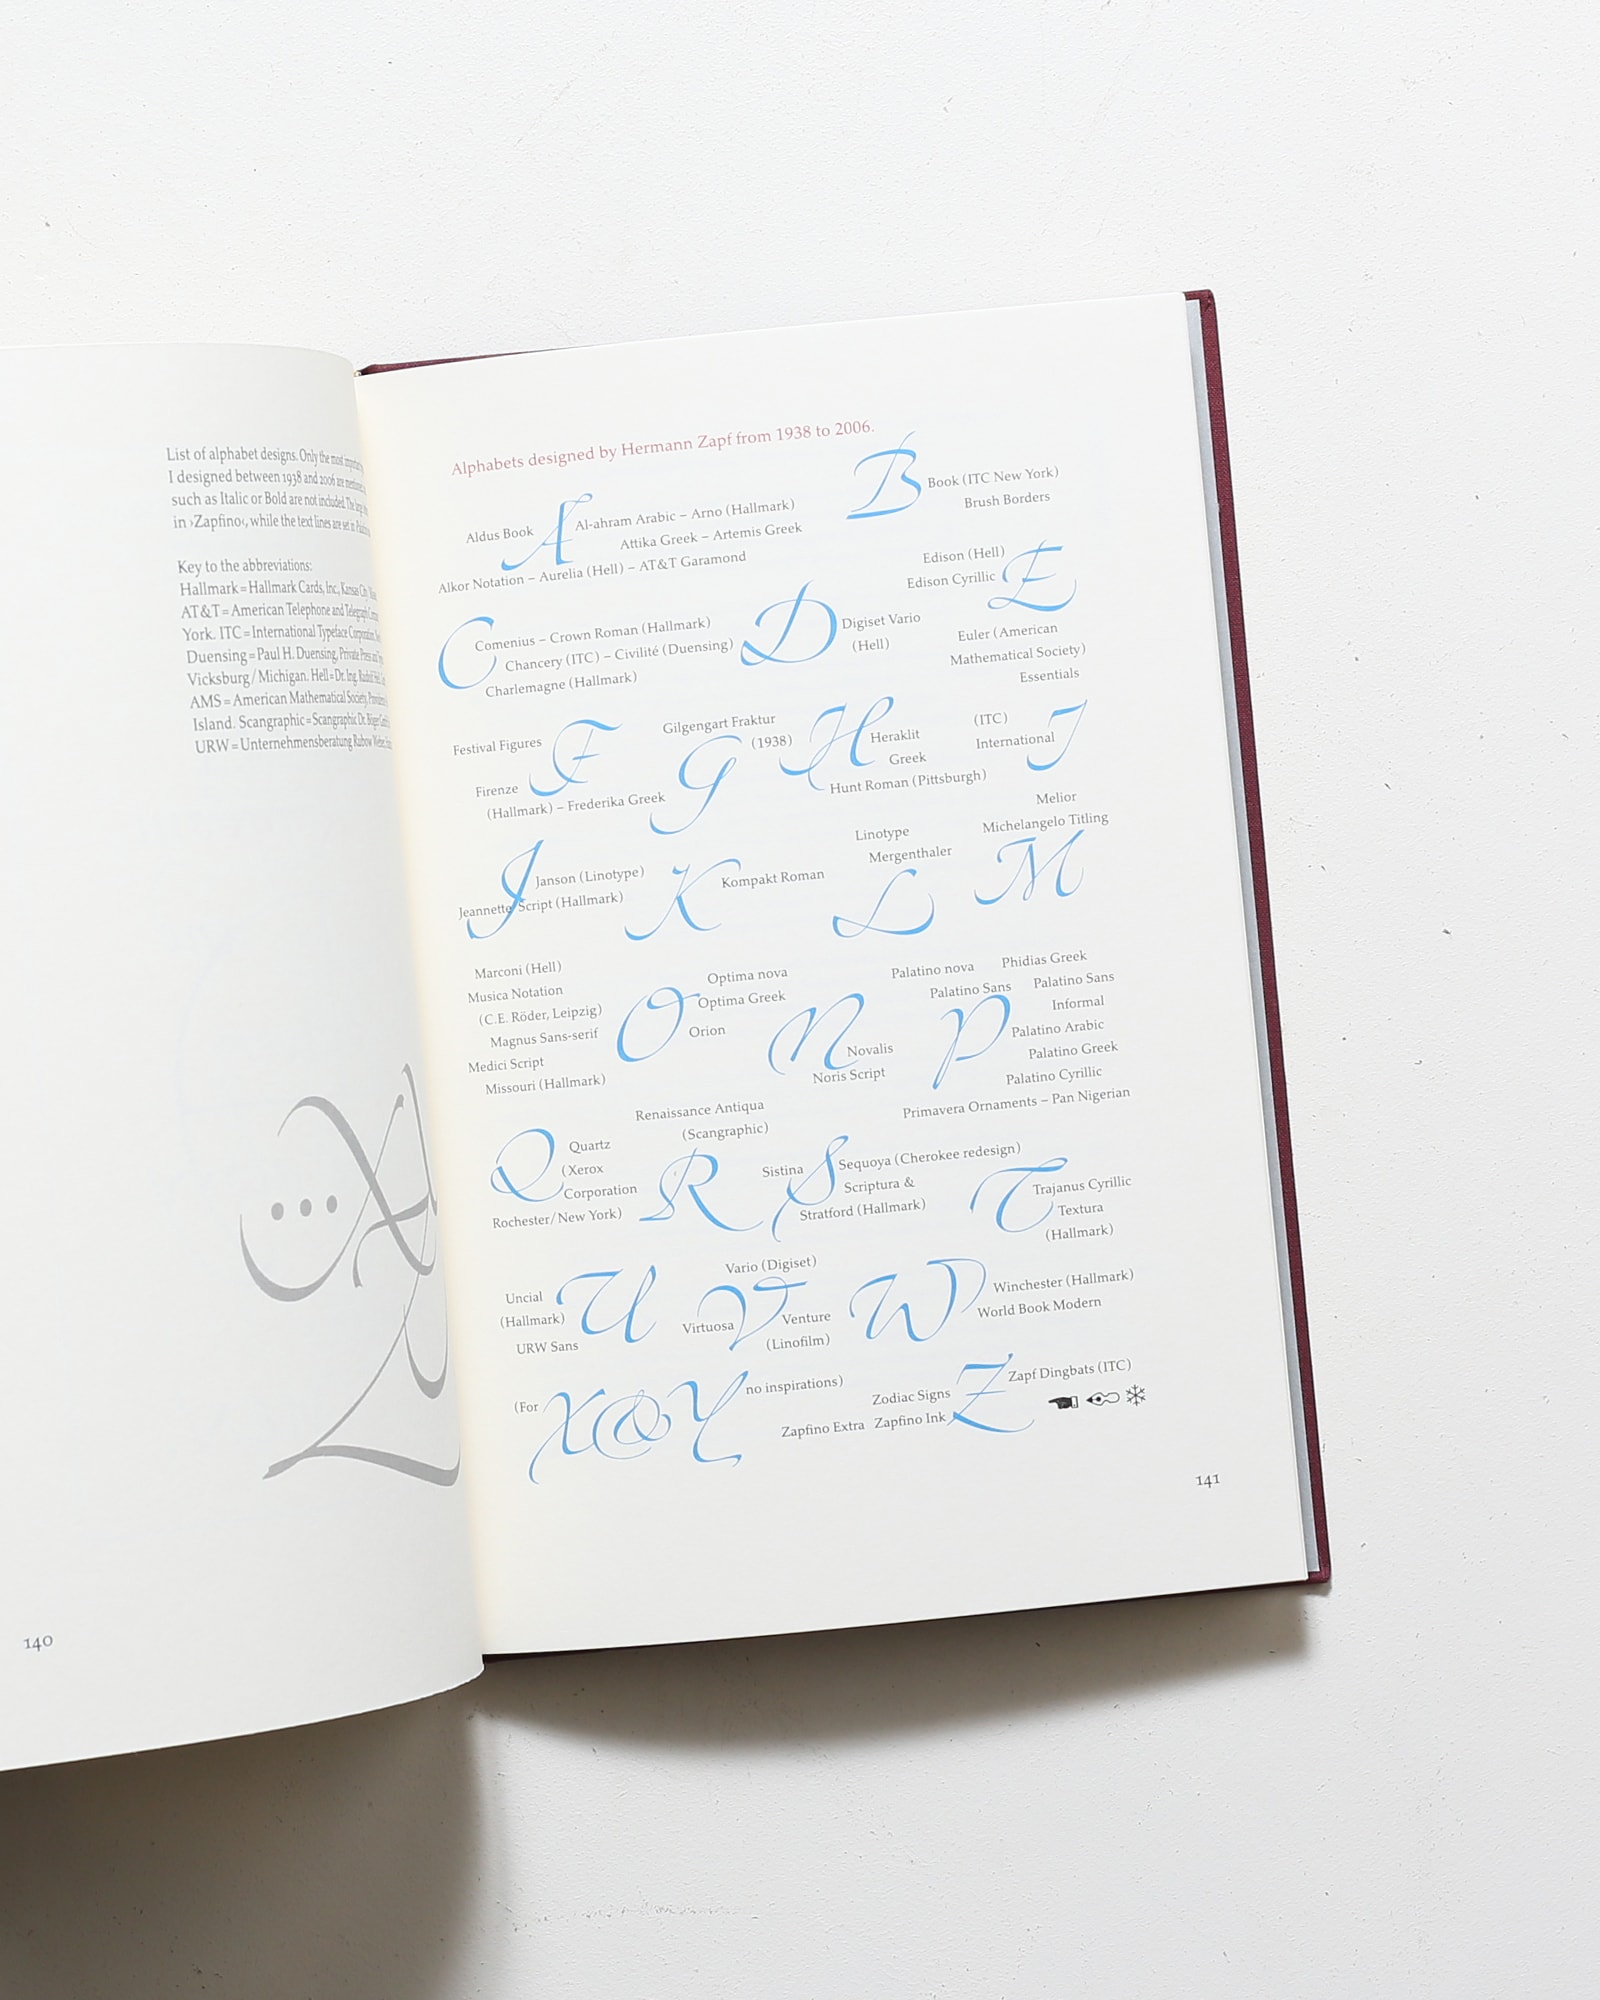 List of alphabet designs. Only the most
I designed between 1938 and 2006 are
such as Italic or Bold are not included. The
in ›Zapfino‹, while the text lines are set in
Key to the abbreviations:
Hallmark = Hallmark Cards, Inc., Kansas City
AT&T = American Telephone and Telegraph
York. ITC = International Typeface Corporation,
Duensing = Paul H. Duensing, Private Press and
Vicksburg / Michigan. Hell = Dr. Ing. Rudolf Hell
AMS = American Mathematical Society,
Island. Scangraphic = Scangraphic Dr. Böger
URW = Unternehmensberatung Rubow Weber
140
Alphabets designed by Hermann Zapf from 1938 to 2006.
A
Aldus Book
Al-ahram Arabic – Arno (Hallmark)
Attika Greek – Artemis Greek
Alkor Notation – Aurelia (Hell) – AT&T Garamond
B
Book (ITC New York)
Brush Borders
C
Comenius – Crown Roman (Hallmark)
Chancery (ITC) – Civilité (Duensing)
Charlemagne (Hallmark)
D
Digiset Vario
(Hell)
Edison (Hell)
Edison Cyrillic
E
Euler (American
Mathematical Society)
Essentials
Festival Figures
F
Firenze
(Hallmark) – Frederika Greek
Gilgengart Fraktur
(1938)
G
H
Heraklit
Greek
Hunt Roman (Pittsburgh)
(ITC)
International
I
J
Janson (Linotype)
Jeannette Script (Hallmark)
K
Kompakt Roman
Linotype
Mergenthaler
L
Melior
Michelangelo Titling
M
Marconi (Hell)
Musica Notation
(C.E. Röder, Leipzig)
Magnus Sans-serif
Medici Script
Missouri (Hallmark)
O
Optima nova
Optima Greek
Orion
N
Novalis
Noris Script
Palatino nova
Phidias Greek
Palatino Sans
Palatino Sans
Informal
P
Palatino Arabic
Palatino Greek
Palatino Cyrillic
Primavera Ornaments – Pan Nigerian
Q
Quartz
(Xerox
Corporation
Rochester/New York)
Renaissance Antiqua
(Scangraphic)
R
Sistina
S
Sequoya (Cherokee redesign)
Scriptura &
Stratford (Hallmark)
T
Trajanus Cyrillic
Textura
(Hallmark)
Uncial
(Hallmark)
URW Sans
U
Vario (Digiset)
Virtuosa
V
Venture
(Linofilm)
W
Winchester (Hallmark)
World Book Modern
(For X & Y no inspirations)
Zodiac Signs
Zapfino Extra Zapfino Ink
Z
Zapf Dingbats (ITC)
141